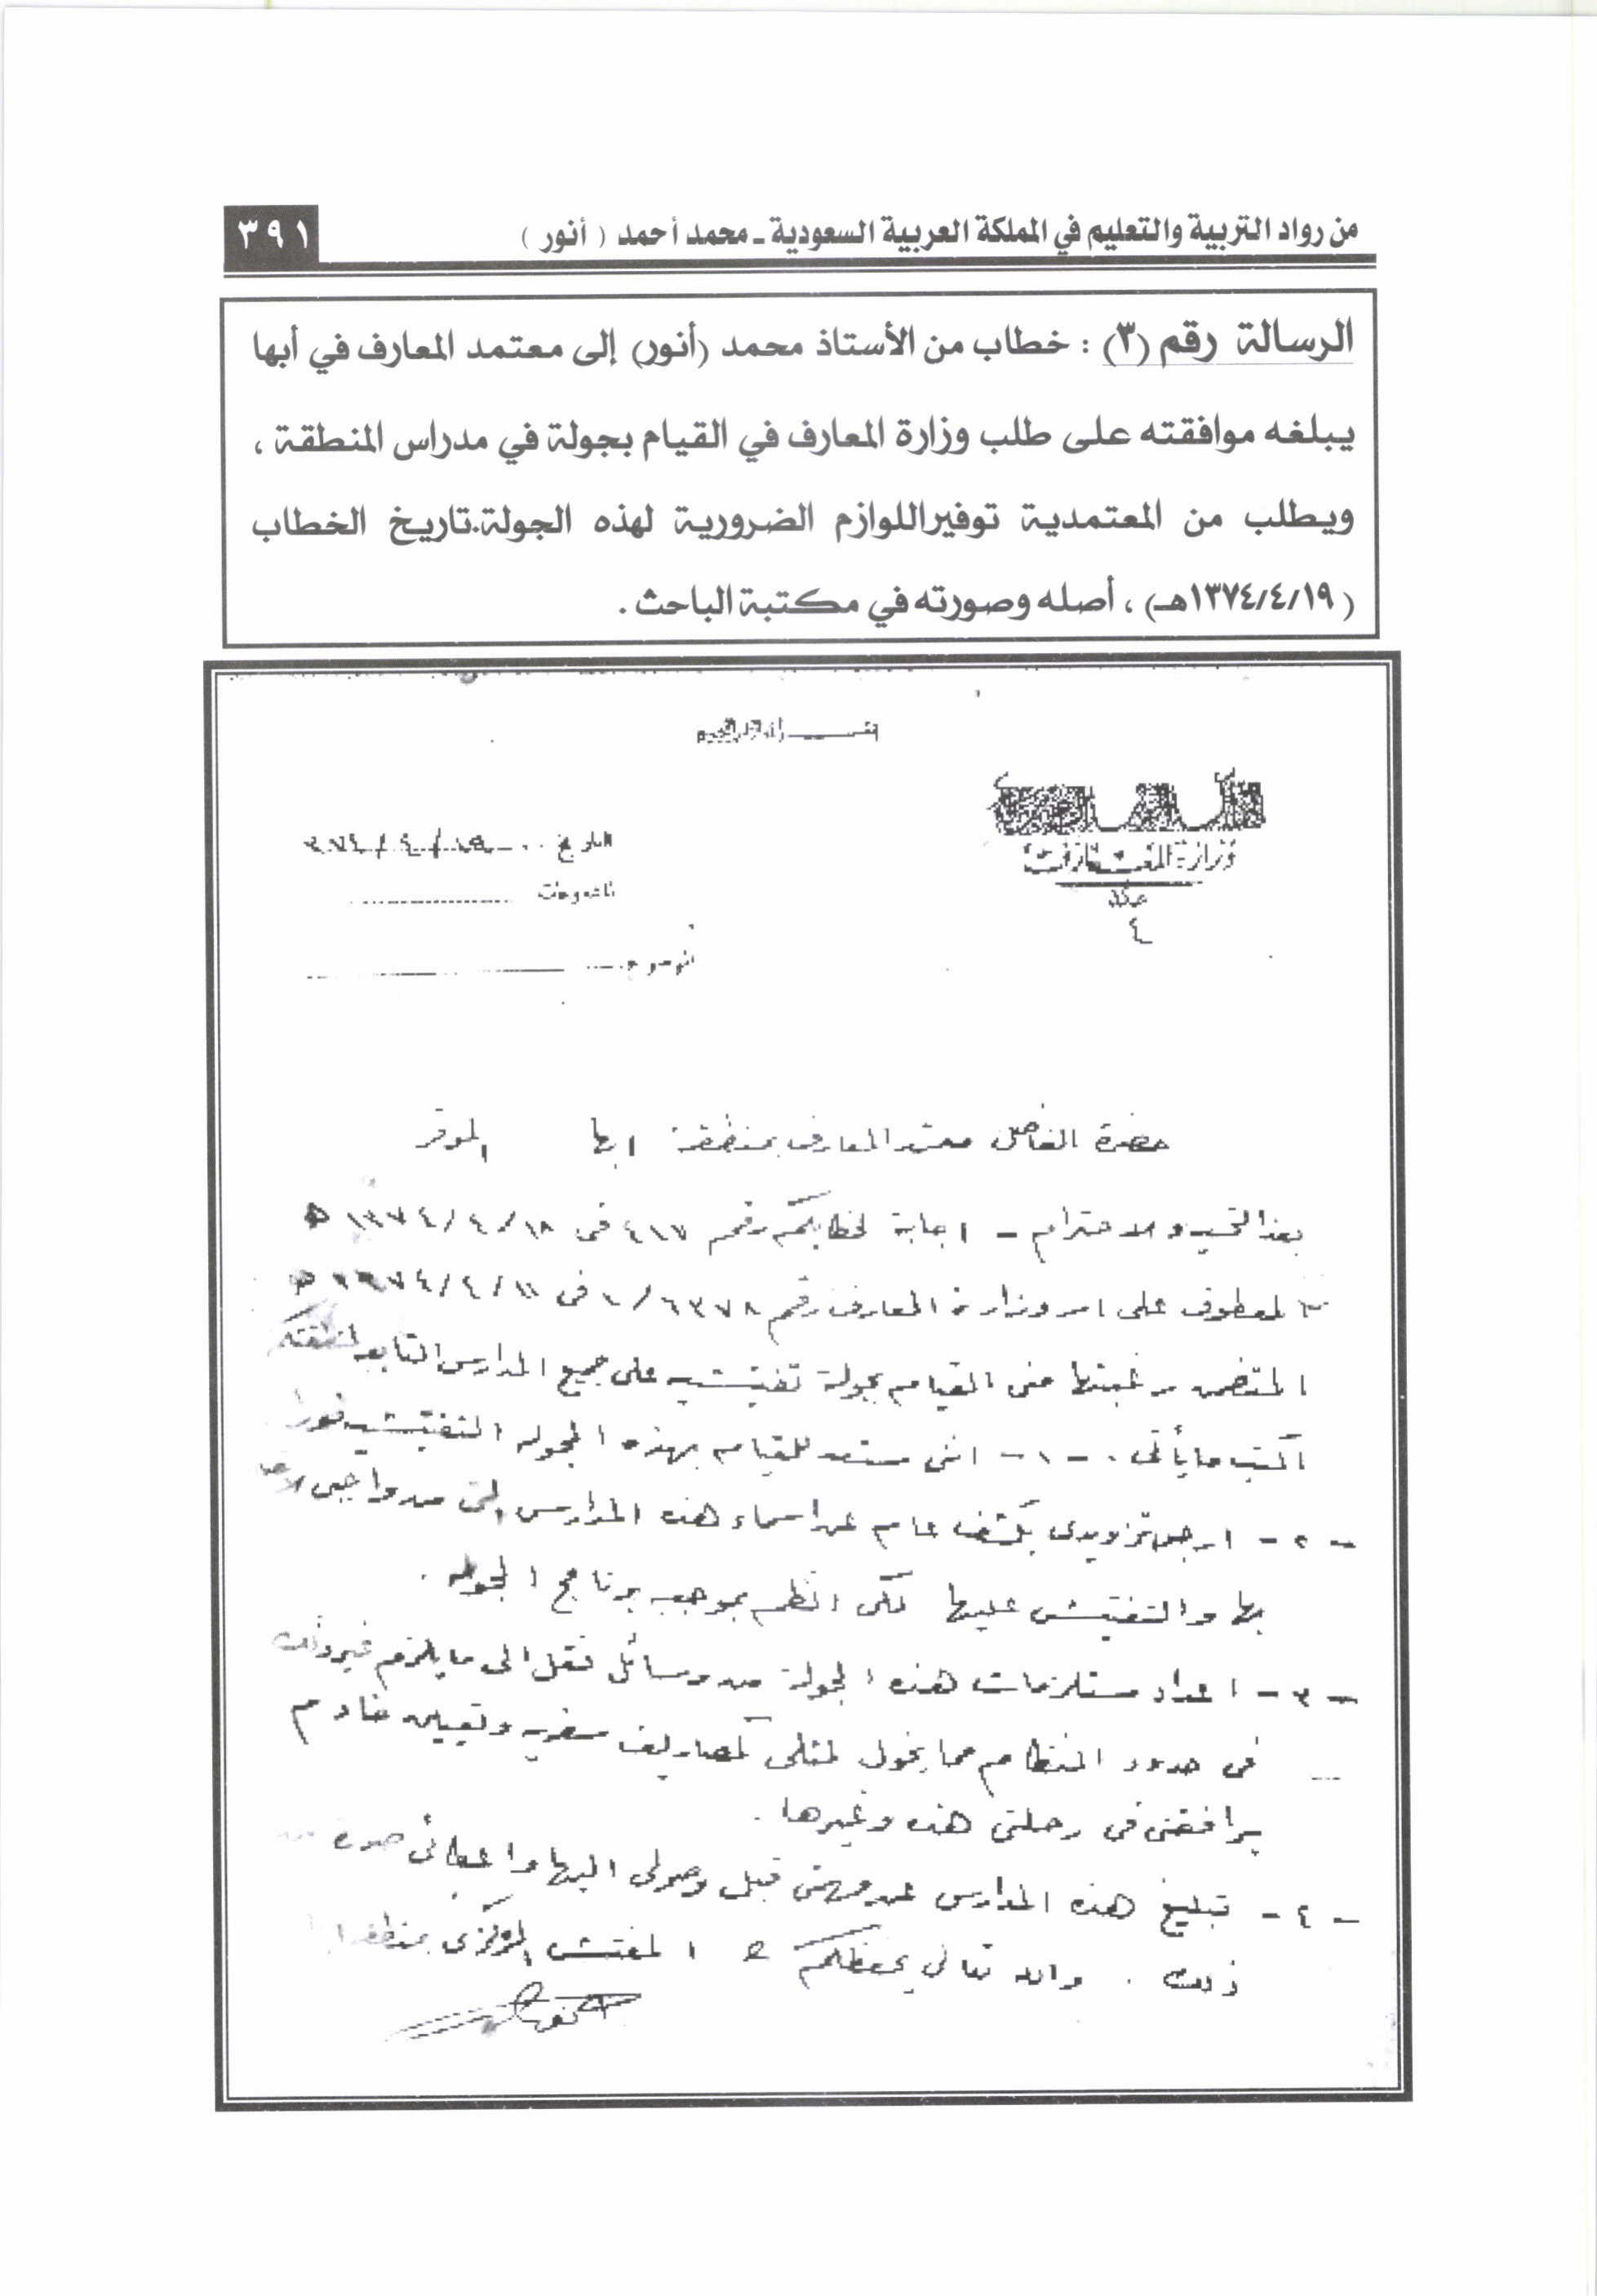 من رواد التربية والتعليم في المملكة العربية السعودية ـ محمد أحمد ( أنور )
٣٩١
الرسالة رقم (٣) : خطاب من الأستاذ محمد (أنور) إلى معتمد المعارف في أبها
يبلغه موافقته على طلب وزارة المعارف في القيام بجولة في مدراس المنطقة ،
ويطلب من المعتمدية توفيراللوازم الضرورية لهذه الجولة.تاريخ الخطاب
(١٣٧٤/٤/١٩هـ) ، أصله وصورته في مكتبة الباحث .
وزارة المعارف
التاريخ
الموضوع
٤
حضرة الفاضل معتمد المعارف بمنطقة ابها الموقر
بعد التحيه والاحترام – اجابة لخطابكم رقم ٤١٧ فى ١٣٧٤/٤/١٨ هـ
المعطوف على امر وزارة المعارف رقم ١/٦٣٧٨ فى ١٣٧٤/٤/١١ هـ
المتضمن رغبتها منى القيام بجولة تفتيشيه على جميع المدارس التابعه لمنطقتكم
اكتب مايأتى . – ١ – اننى مستعد للقيام بهذه الجوله التفتيشيه فورا
– ٢ – ارجو تزويدى بكشف عام عن اسماء هذه المدارس التى من واجبى
بها والتفتيش عليها لكى انظم بموجبه برنامج الجوله .
– ٣ – اعداد مستلزمات هذه الجولة من وسائل نقل الى ما يلزم غير ذلك
فى حدود النظام مما يخول لمثلى كمصاريف سفريه وتعيين خادم
يرافقنى فى رحلتى هذه وغيرها .
– ٤ – تبليغ هذه المدارس عن مهمتى قبل وصولى اليها واعطائى صورة من
ذلك . والله تعالى يحفظكم المفتش المركزى بمنطقة ابها